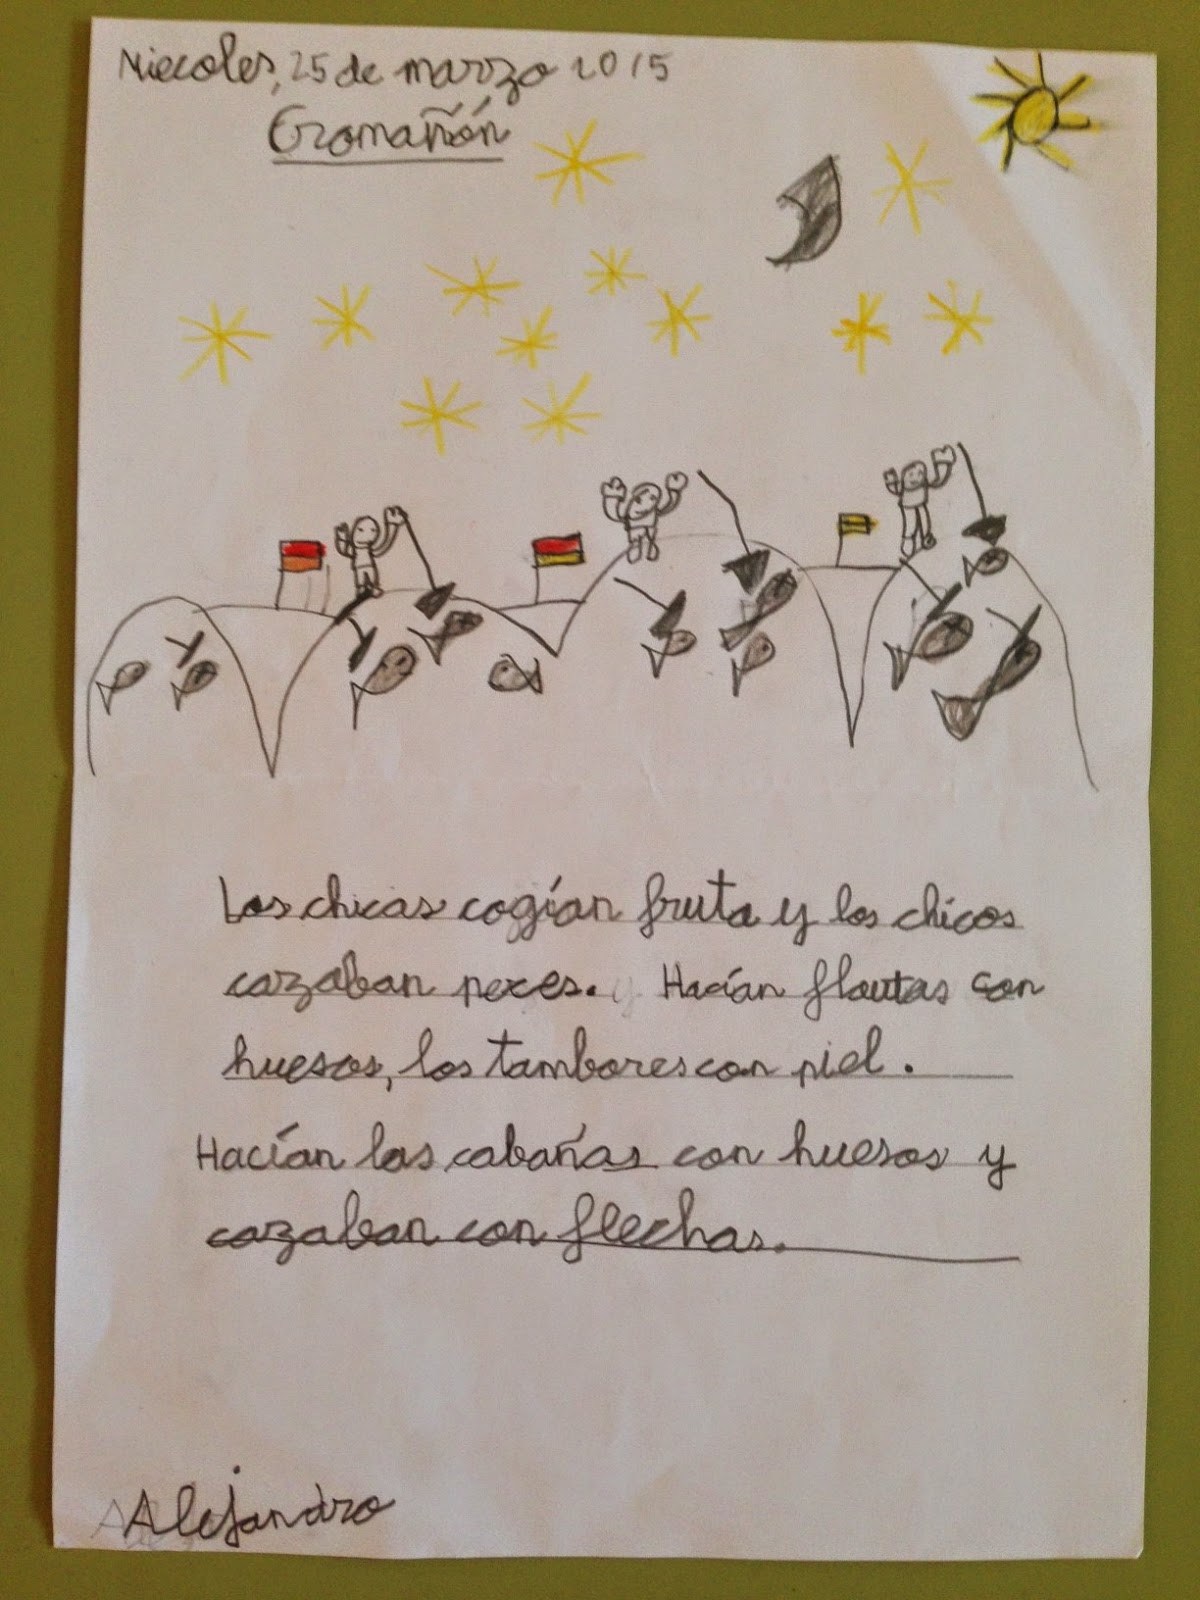 Miecoles, 25 de marzo 2015
Cromañón
Las chicas cogían fruta y los chicos
cazaban peces. Hacían flautas con
huesos, los tambores con piel.
Hacían las cabañas con huesos y
cazaban con flechas.
Alejandro